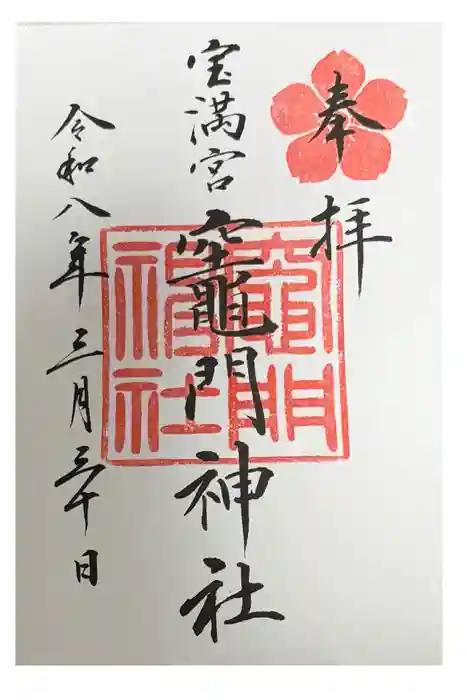 奉拝
宝満宮 竈門神社
令和八年三月三十日
竈門
神社